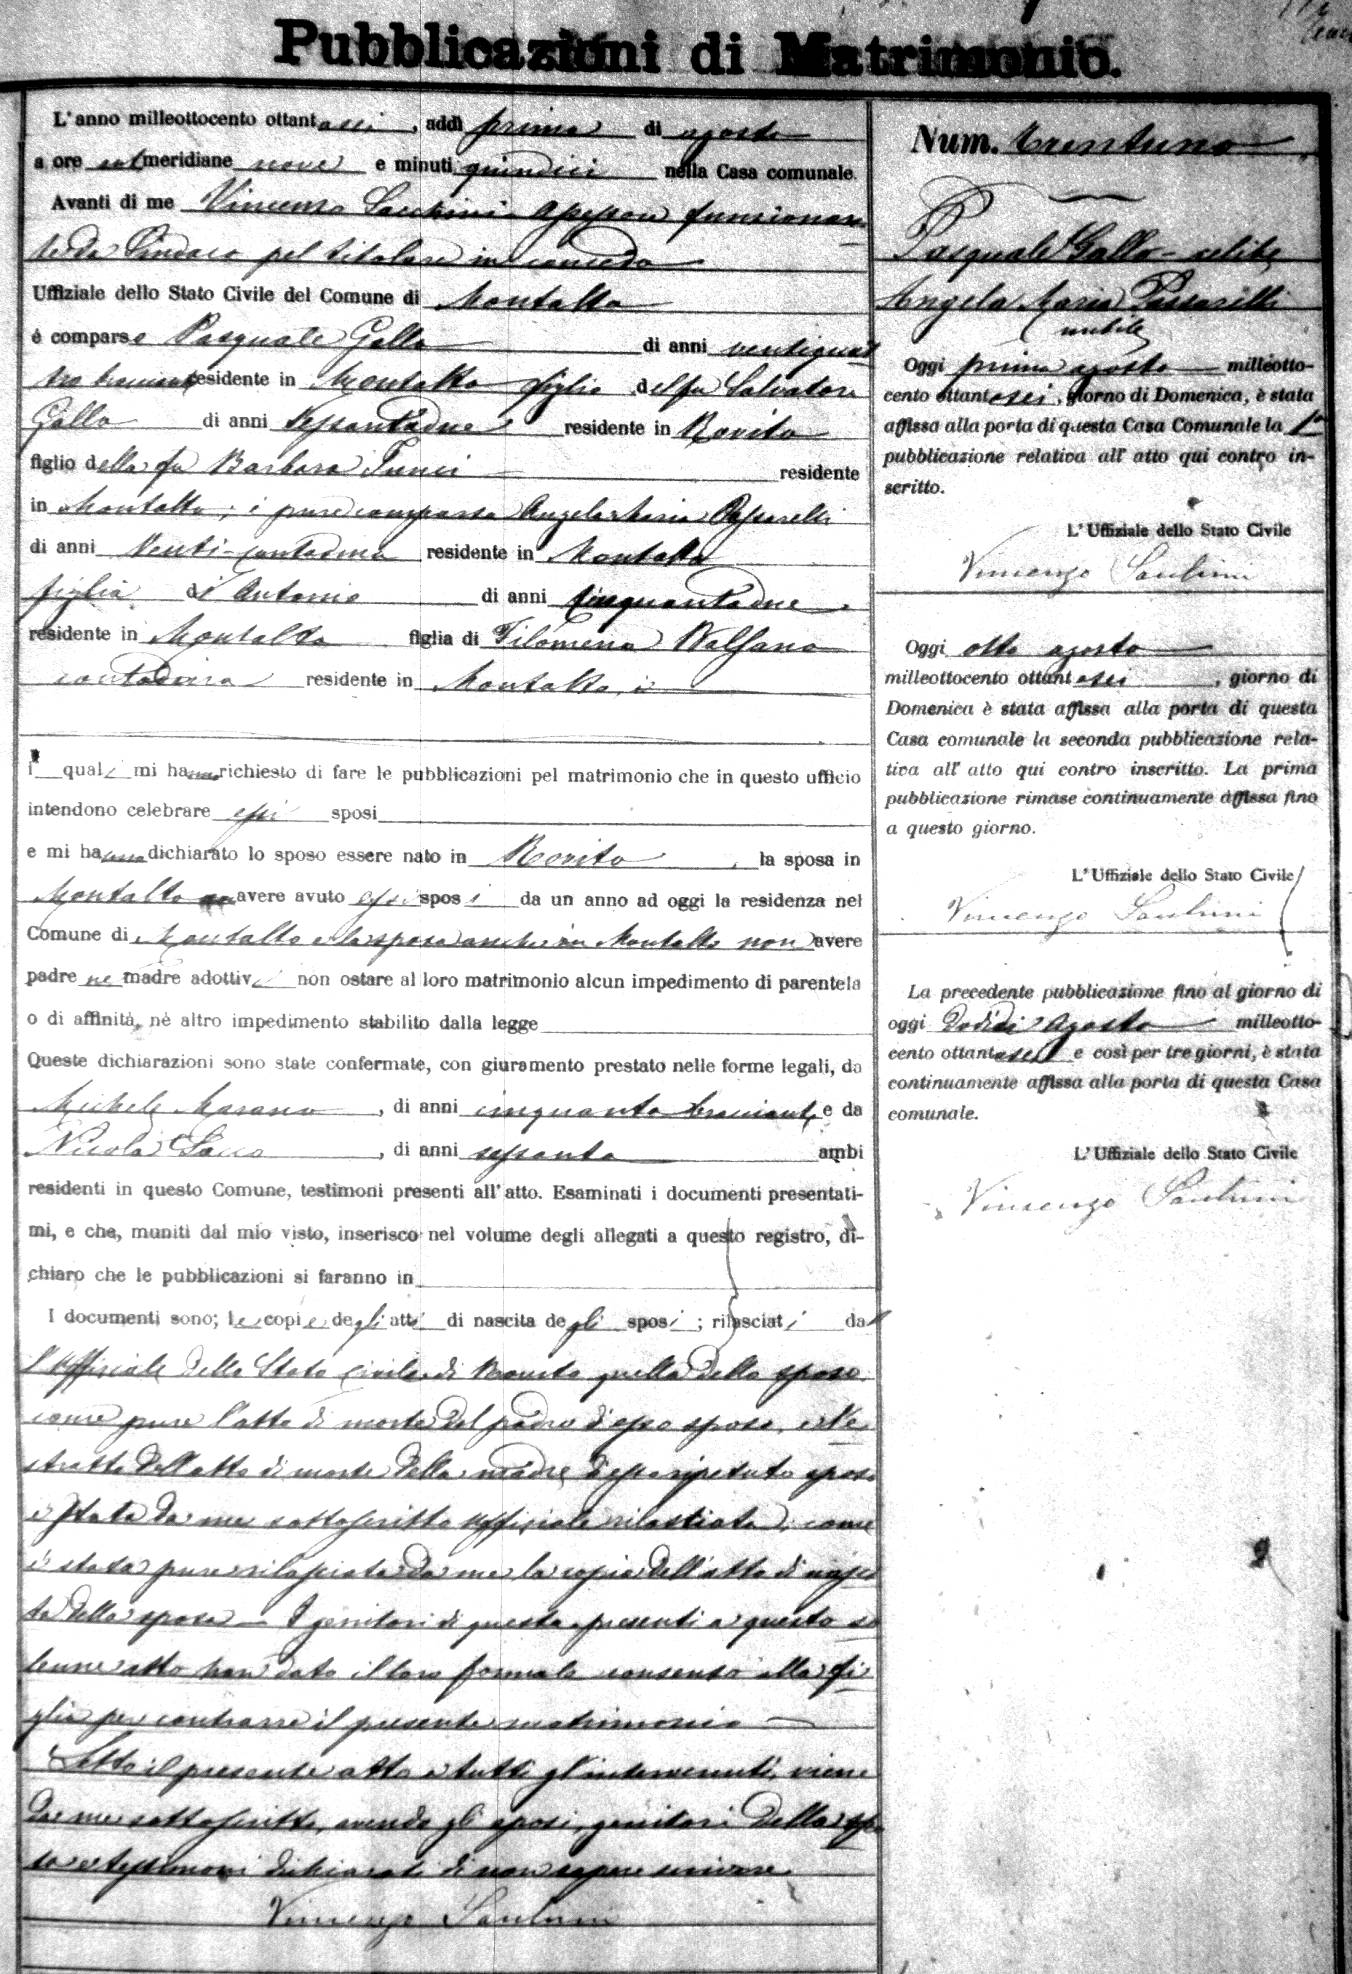 Pubblicazioni di Matrimonio.
L'anno milleottocento ottantasei, addì primo di agosto
a ore antmeridiane nove e minuti quindici nella Casa comunale.
Avanti di me Vincenzo Santinni Assessore funzionan
te da Sindaco pel titolare in congedo
Uffiziale dello Stato Civile del Comune di Montalto
è comparso Pasquale Gallo di anni ventiquat
tro bracciante residente in Montalto figlio del fu Salvatore
Gallo di anni sessantadue residente in Rovito
figlio della fu Barbara residente
in Montalto; è pure comparsa Angela Maria Passarelli
di anni venti contadina residente in Montalto
figlia di Antonio di anni cinquantadue
residente in Montalto figlia di Filomena Walfano
contadina residente in Montalto
i quali mi hanno richiesto di fare le pubblicazioni pel matrimonio che in questo ufficio
intendono celebrare essi sposi
e mi hanno dichiarato lo sposo essere nato in Rovito, la sposa in
Montalto avere avuto essi sposi da un anno ad oggi la residenza nel
Comune di Montalto e la sposa anche in Montalto non avere
padre nè madre adottivi non ostare al loro matrimonio alcun impedimento di parentela
o di affinità, nè altro impedimento stabilito dalla legge
Queste dichiarazioni sono state confermate, con giuramento prestato nelle forme legali, da
Michele Marano, di anni cinquanta bracciante e da
Nicola Sacco, di anni sessanta ambi
residenti in questo Comune, testimoni presenti all'atto. Esaminati i documenti presentati-
mi, e che, muniti dal mio visto, inserisco nel volume degli allegati a questo registro, di-
chiaro che le pubblicazioni si faranno in
I documenti sono; le copie degli atti di nascita degli sposi; rilasciati dal
l'Uffiziale dello Stato Civile di Rovito quella dello sposo
come pure l'atto di morte del padre d'esso sposo, e l'e
stratto dell'atto di morte della madre d'esso ripetuto sposo
è stata da me sottoscritto uffiziale rilasciata, come
è stata pure rilasciata da me la copia dell'atto di nasci
ta della sposa — I genitori di questa presenti a questo so
lenne atto han dato il loro formale consenso alla fi
glia per contrarre il presente matrimonio —
Letto il presente atto a tutti gl'intervenuti, viene
da me sottoscritto, avendo gli sposi, genitori della spo
sa e testimoni dichiarati di non sapere scrivere
Vincenzo Santinni
Num. trentuno
Pasquale Gallo — celibe
Angela Maria Passarelli
nubile
Oggi primo agosto milleotto-
cento ottantasei, giorno di Domenica, è stata
affissa alla porta di questa Casa Comunale la 1a
pubblicazione relativa all'atto qui contro in-
scritto.
L'Uffiziale dello Stato Civile
Vincenzo Santinni
Oggi otto agosto
milleottocento ottantasei, giorno di
Domenica è stata affissa alla porta di questa
Casa comunale la seconda pubblicazione rela-
tiva all'atto qui contro inscritto. La prima
pubblicazione rimase continuamente affissa fino
a questo giorno.
L'Uffiziale dello Stato Civile
Vincenzo Santinni
La precedente pubblicazione fino al giorno di
oggi dodici agosto milleotto-
cento ottantasei e così per tre giorni, è stata
continuamente affissa alla porta di questa Casa
comunale.
L'Uffiziale dello Stato Civile
Vincenzo Santinni